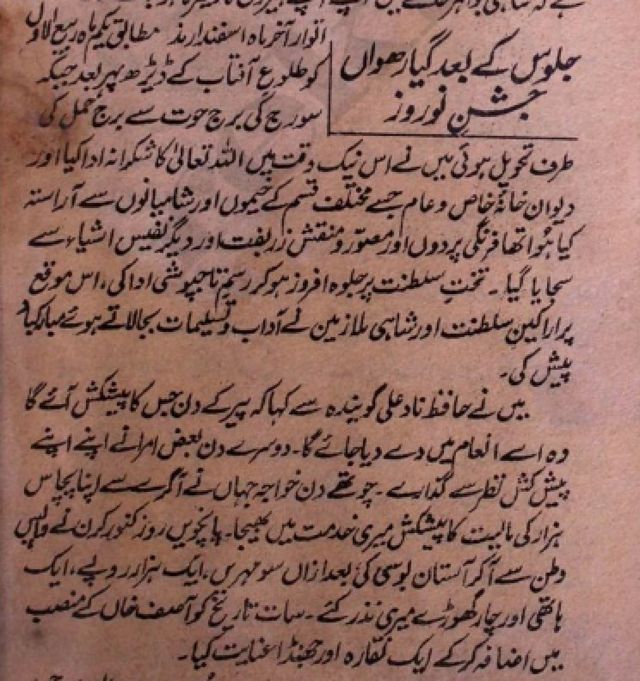 جلوس کے بعد گیارھواں
جشنِ نوروز
اتوار آخر ماہ اسفندار مذ مطابق یکم ماہ ربیع الاول
کو طلوع آفتاب کے ڈیڑھ پہر بعد جبکہ
سورج کی برج حوت سے برج حمل کی
طرف تحویل ہوئی میں نے اس نیک وقت میں اللہ تعالیٰ کا شکرانہ ادا کیا اور
دیوان خانۂ خاص و عام جسے مختلف قسم کے خیموں اور شامیانوں سے آراستہ
کیا ہُوا تھا فرنگی پردوں اور مصوّر و منقش زربفت اور دیگر نفیس اشیاء سے
سجایا گیا۔ تختِ سلطنت پر جلوہ افروز ہو کر رسمِ تاجپوشی ادا کی، اس موقع
پر اراکینِ سلطنت اور شاہی ملازمین نے آداب و تسلیمات بجا لاتے ہوئے مبارکباد
پیش کی۔
میں نے حافظ نادِ علی گویندہ سے کہا کہ پیر کے دن جس کا پیشکش آئے گا
وہ اسے انعام میں دے دیا جائے گا۔ دوسرے دن بعض امرا نے اپنے اپنے
پیش کش نظر سے گذارے۔ چوتھے دن خواجہ جہاں نے آگرے سے اپنا پچاس
ہزار کی مالیت کا پیشکش میری خدمت میں بھیجا۔ پانچویں روز کنور کرن نے واپس
وطن سے آکر آستان بوسی کی بعد ازاں سو مہریں، ایک ہزار روپے، ایک
ہاتھی اور چار گھوڑے میری نذر کئے۔ سات تاریخ کو آصف خاں کے منصب
میں اضافہ کر کے ایک نقارہ اور جھنڈا عنایت کیا۔